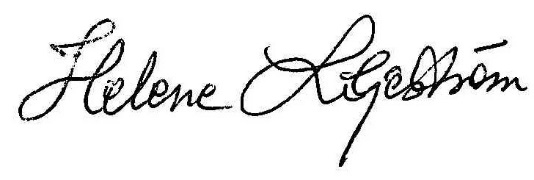 Helene Liljeström